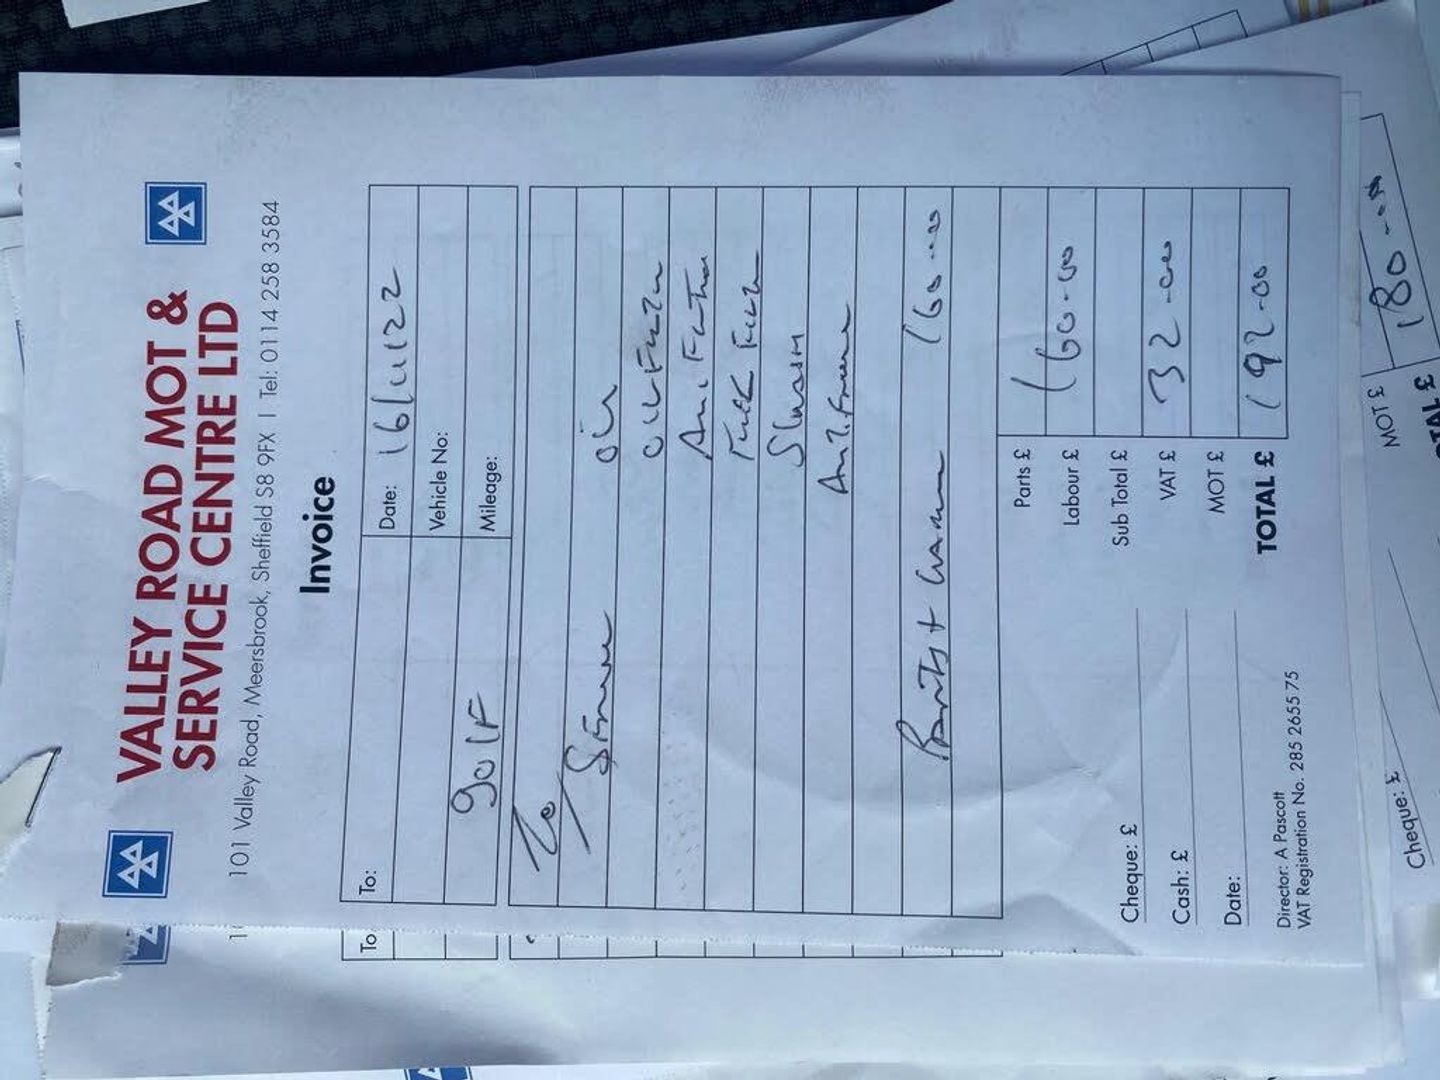 VALLEY ROAD MOT &
SERVICE CENTRE LTD
101 Valley Road, Meersbrook, Sheffield S8 9FX | Tel: 0114 258 3584
Invoice
To:
Date: 16/4/22
Vehicle No:
golf
Mileage:
To
Service oil
oil Filter
Air Filter
Fuel Filter
Anti Freeze
Parts + Labour 160-00
Parts £
Labour £ 160-00
Sub Total £
VAT £ 32-00
MOT £
TOTAL £ 192-00
Cheque: £
Cash: £
Date:
Director: A Pascott
VAT Registration No. 285 2655 75
To
MOT £ 180-00
TAL £
Cheque: £